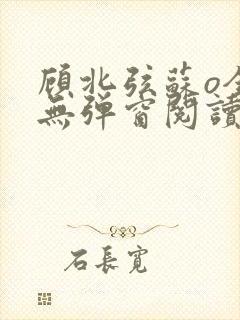 顾北弦蘇o全
無弹窗閱讀
石長寬